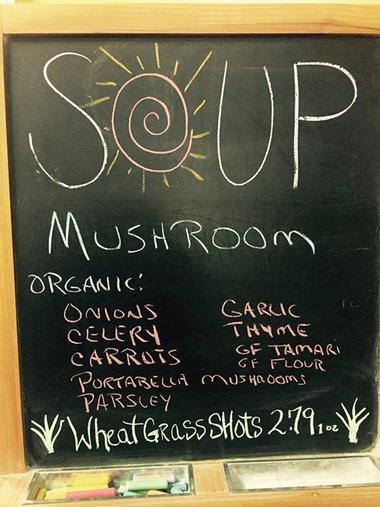 SOUP
MUSHROOM
ORGANIC:
ONIONS GARLIC
CELERY THYME
CARROTS GF TAMARI
GF FLOUR
PORTABELLA MUSHROOMS
PARSLEY
WheatGrass SHots 2.79 1 oz